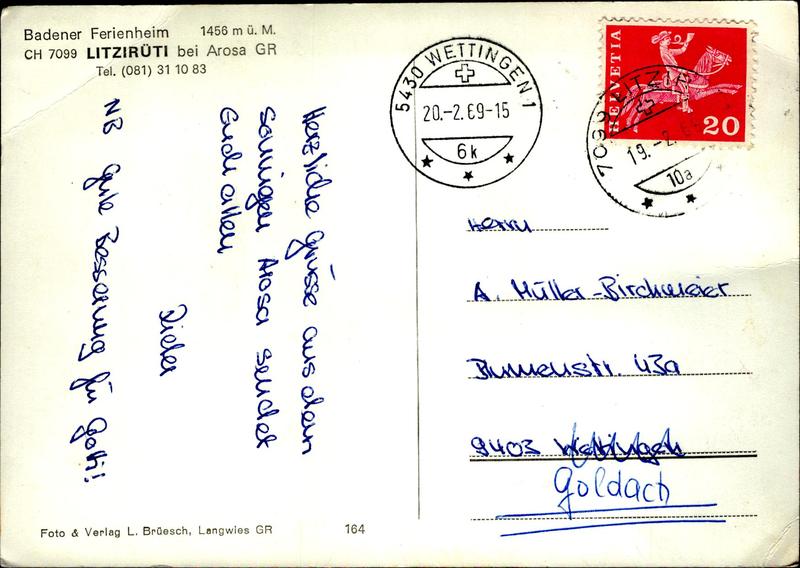 Badener Ferienheim 1456 m ü. M.
CH 7099 LITZIRÜTI bei Arosa GR
Tel. (081) 31 10 83
Herzliche Grüsse aus dem
sonnigen Arosa sendet
Euch allen
Dieter
NB Gute Besserung für Gotti!
Foto & Verlag L. Brüesch, Langwies GR 164
5430 WETTINGEN 1
20.-2.69-15
6k
HELVETIA
20
7099 LITZIR
19.-2.69
10a
Herrn
A. Müller-Birchmeier
Blumenstr. 43a
9403 Wettingen
Goldach